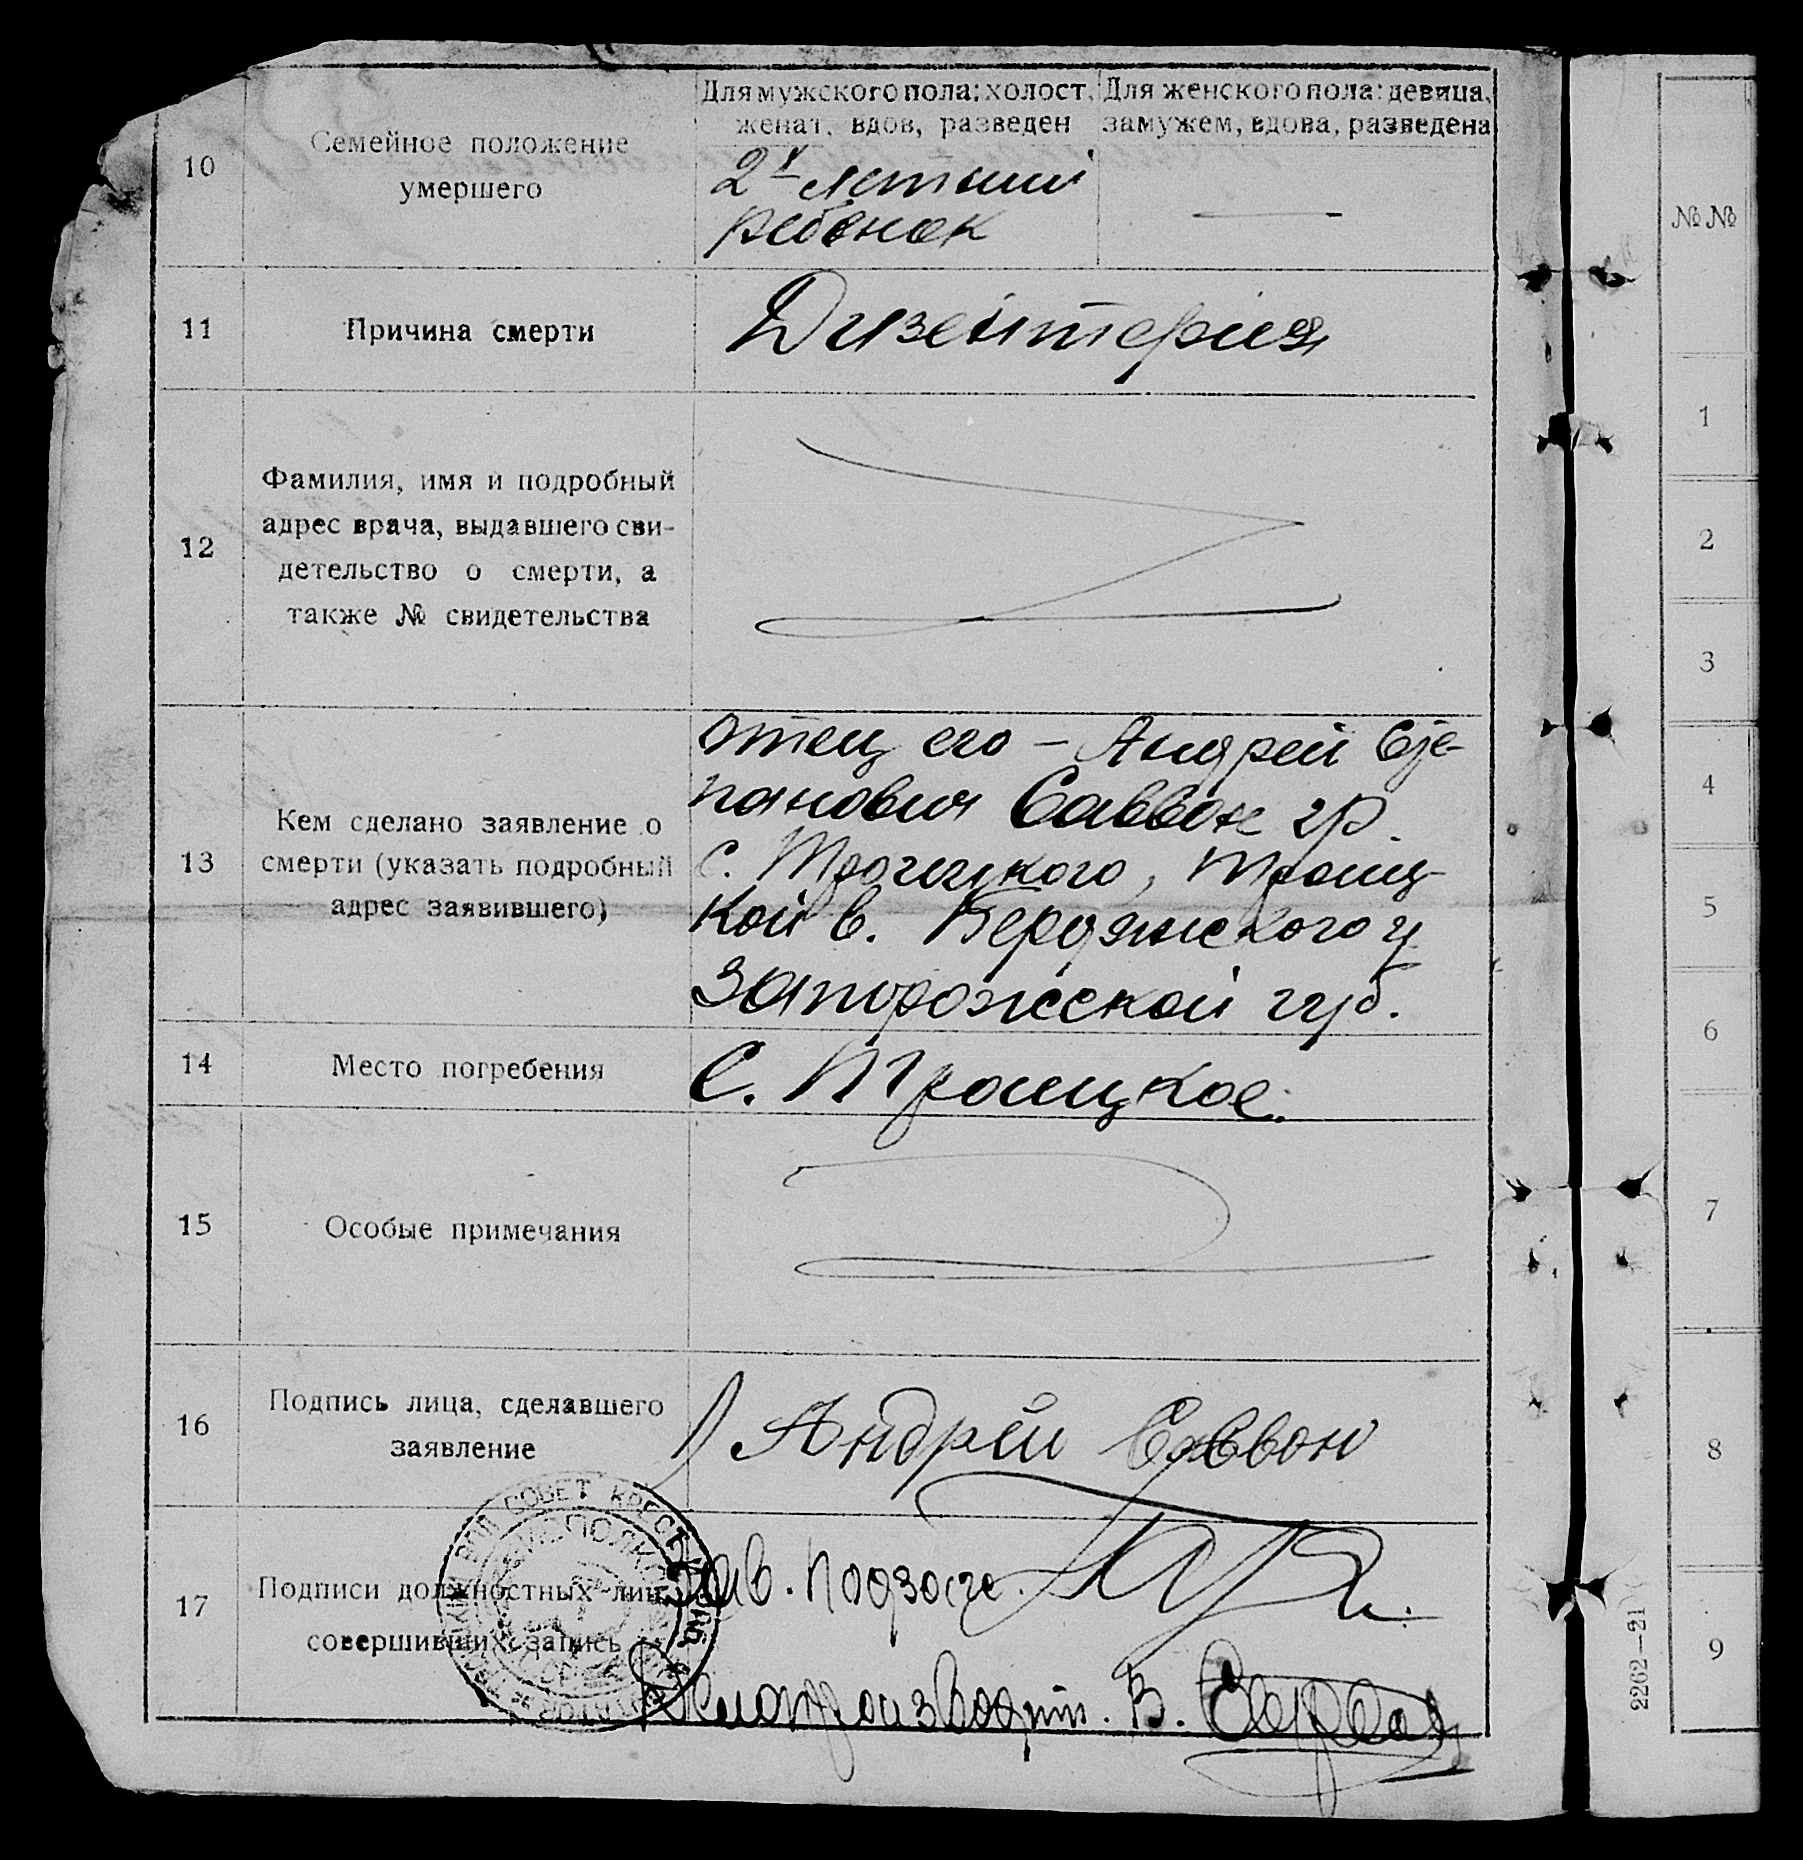 Для мужского пола: холост, женат, вдов, разведен
Для женского пола: девица, замужем, вдова, разведена
10
Семейное положение
умершего
2х летний
ребенок
—
11
Причина смерти
Дизентерия
12
Фамилия, имя и подробный
адрес врача, выдавшего сви-
детельство о смерти, а
также № свидетельства
13
Кем сделано заявление о
смерти (указать подробный
адрес заявившего)
отец его – Андрей Сте-
панович Саввон гр.
с. Троицкого, Троиц-
кой в. Бердянского у
Запорожской губ.
14
Место погребения
С. Троицкое.
15
Особые примечания
16
Подпись лица, сделавшего
заявление
Андрей Саввон
17
Подписи должностных лиц,
совершивших запись
СОВЕТ КРЕСТ
Зав. подзаге.
Делопроизводит. В.
№№
1
2
3
4
5
6
7
8
9
2262—21